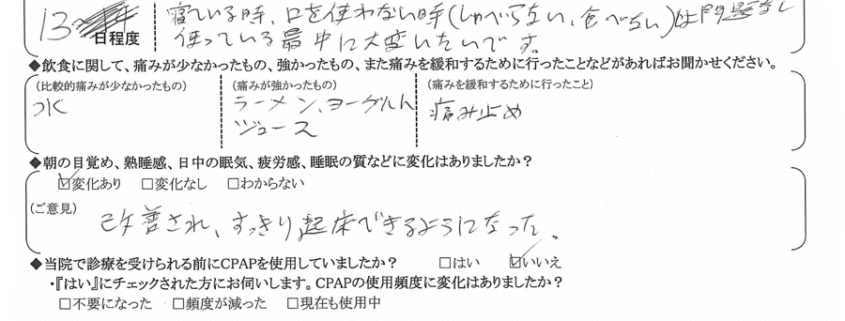 13 日程度
寝ている時、口を使わない時(しゃべらない、食べない)は問題なし
使っている最中に大変いたいです。
◆飲食に関して、痛みが少なかったもの、強かったもの、また痛みを緩和するために行ったことなどがあればお聞かせください。
(比較的痛みが少なかったもの) (痛みが強かったもの) (痛みを緩和するために行ったこと)
水 ラーメン、ヨーグルト 痛み止め
ジュース
◆朝の目覚め、熟睡感、日中の眠気、疲労感、睡眠の質などに変化はありましたか?
☑変化あり □変化なし □わからない
(ご意見)
改善され、すっきり起床できるようになった。
◆当院で診療を受けられる前にCPAPを使用していましたか? □はい ☑いいえ
・『はい』にチェックされた方にお伺いします。CPAPの使用頻度に変化はありましたか?
□不要になった □頻度が減った □現在も使用中